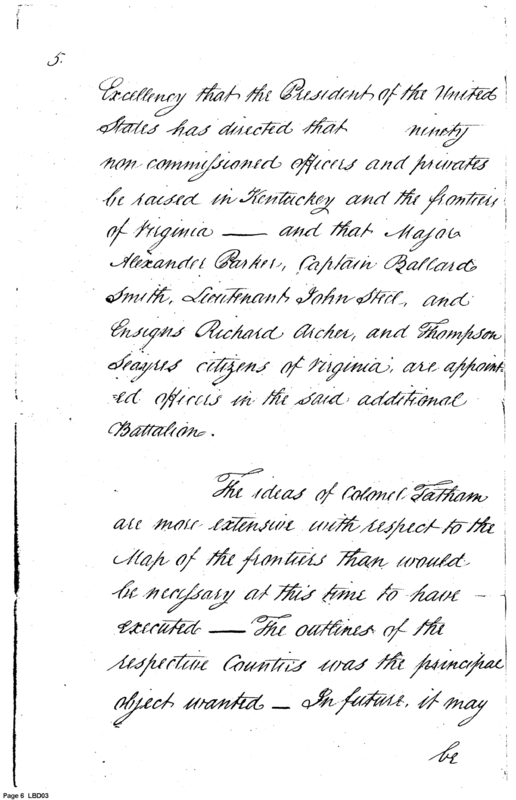 5.
Excellency that the President of the United
States has directed that ninety
non commissioned officers and privates
be raised in Kentuckey and the frontiers
of Virginia — and that Major
Alexander Parker, Captain Ballard
Smith, Lieutenant John Steel, and
Ensigns Richard Archer, and Thompson
Seayres citizens of Virginia, are appoint
ed officers in the said additional
Battalion.
The ideas of Colonel Tatham
are more extensive with respect to the
Map of the frontiers than would
be necessary at this time to have —
executed — The outlines of the
respective Counties was the principal
object wanted — In future, it may
be
Page 6 LBD03